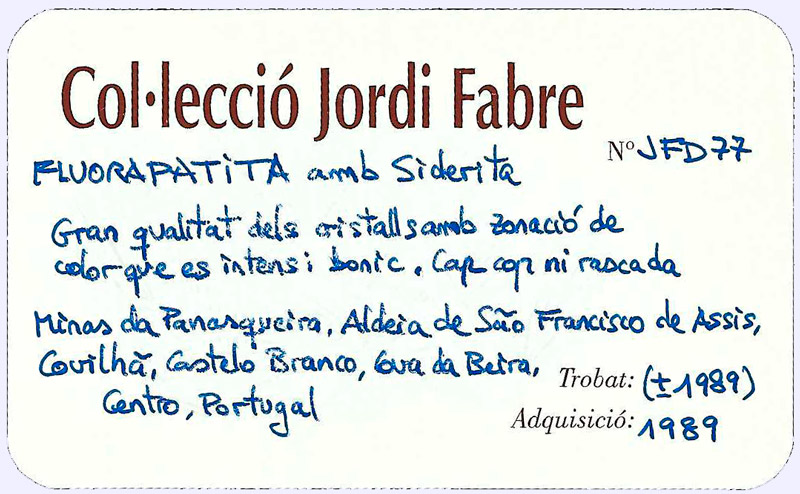 Col·lecció Jordi Fabre
Nº JFD77
FLUORAPATITA amb Siderita
Gran qualitat dels cristalls amb zonació de
color que es intens i bonic. Cap cop ni rascada
Minas da Panasqueira, Aldeia de São Francisco de Assis,
Covilhã, Castelo Branco, Cova da Beira,
Centro, Portugal
Trobat: (±1989)
Adquisició: 1989